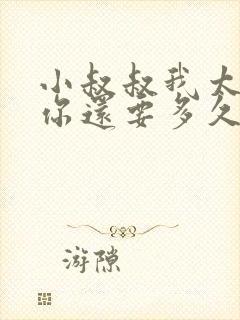 小叔叔我太
你還要多久
游隙